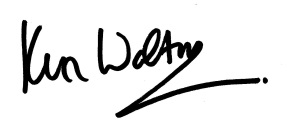 Ken Walton